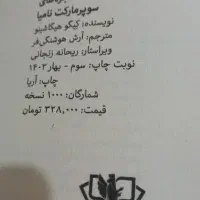 سوپرمارکت نامیا
نویسنده: کیگو هیگاشینو
مترجم: آرش هوشنگی‌فر
ویراستار: ریحانه زنجانی
نوبت چاپ: سوم - بهار ۱۴۰۳
چاپ: آریا
شمارگان: ۱۰۰۰ نسخه
قیمت: ۳۲۸,۰۰۰ تومان